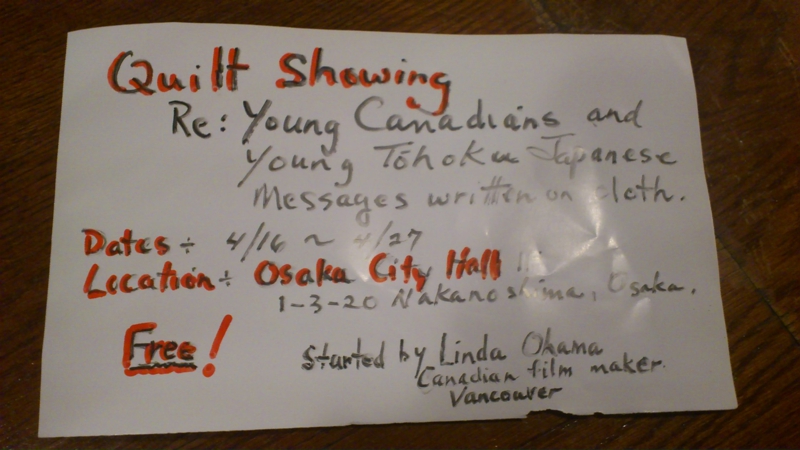 Quilt Showing
Re: Young Canadians and
Young Tōhoku Japanese
Messages written on cloth.
Dates ÷ 4/16 ~ 4/27
Location ÷ Osaka City Hall !!
1-3-20 Nakanoshima, Osaka.
Free!
Started by Linda Ohama
Canadian film maker.
Vancouver